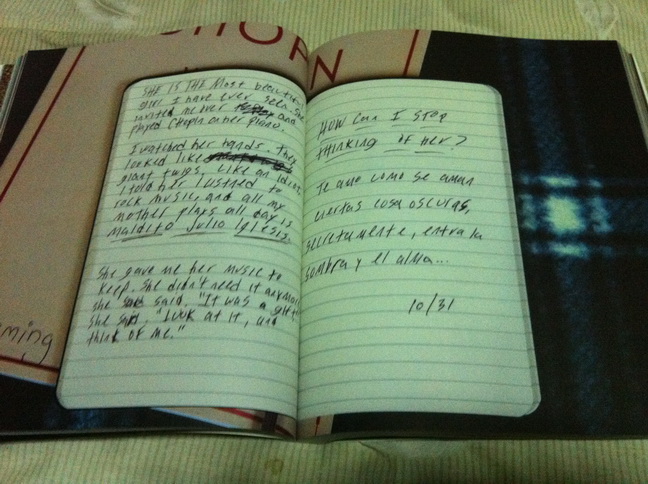 CHOPIN
SHE IS THE MOST beautiful
girl I have ever seen. She
invited me over and
played Chopin on her piano.
I watched her hands. They
looked like
giant twigs, like an idiot
I told her I listened to
rock music, and all my
mother plays all day is
maldito Julio Iglesis.
She gave me her music to
keep. She didn't need it anymore
she said. "It was a gift"
She said, "Look at it, and
think of me."
HOW Can I stop
thinking of her?
Te amo como se aman
ciertas cosa oscuras,
secretamente, entra la
sombra y el alma...
10/31
ming